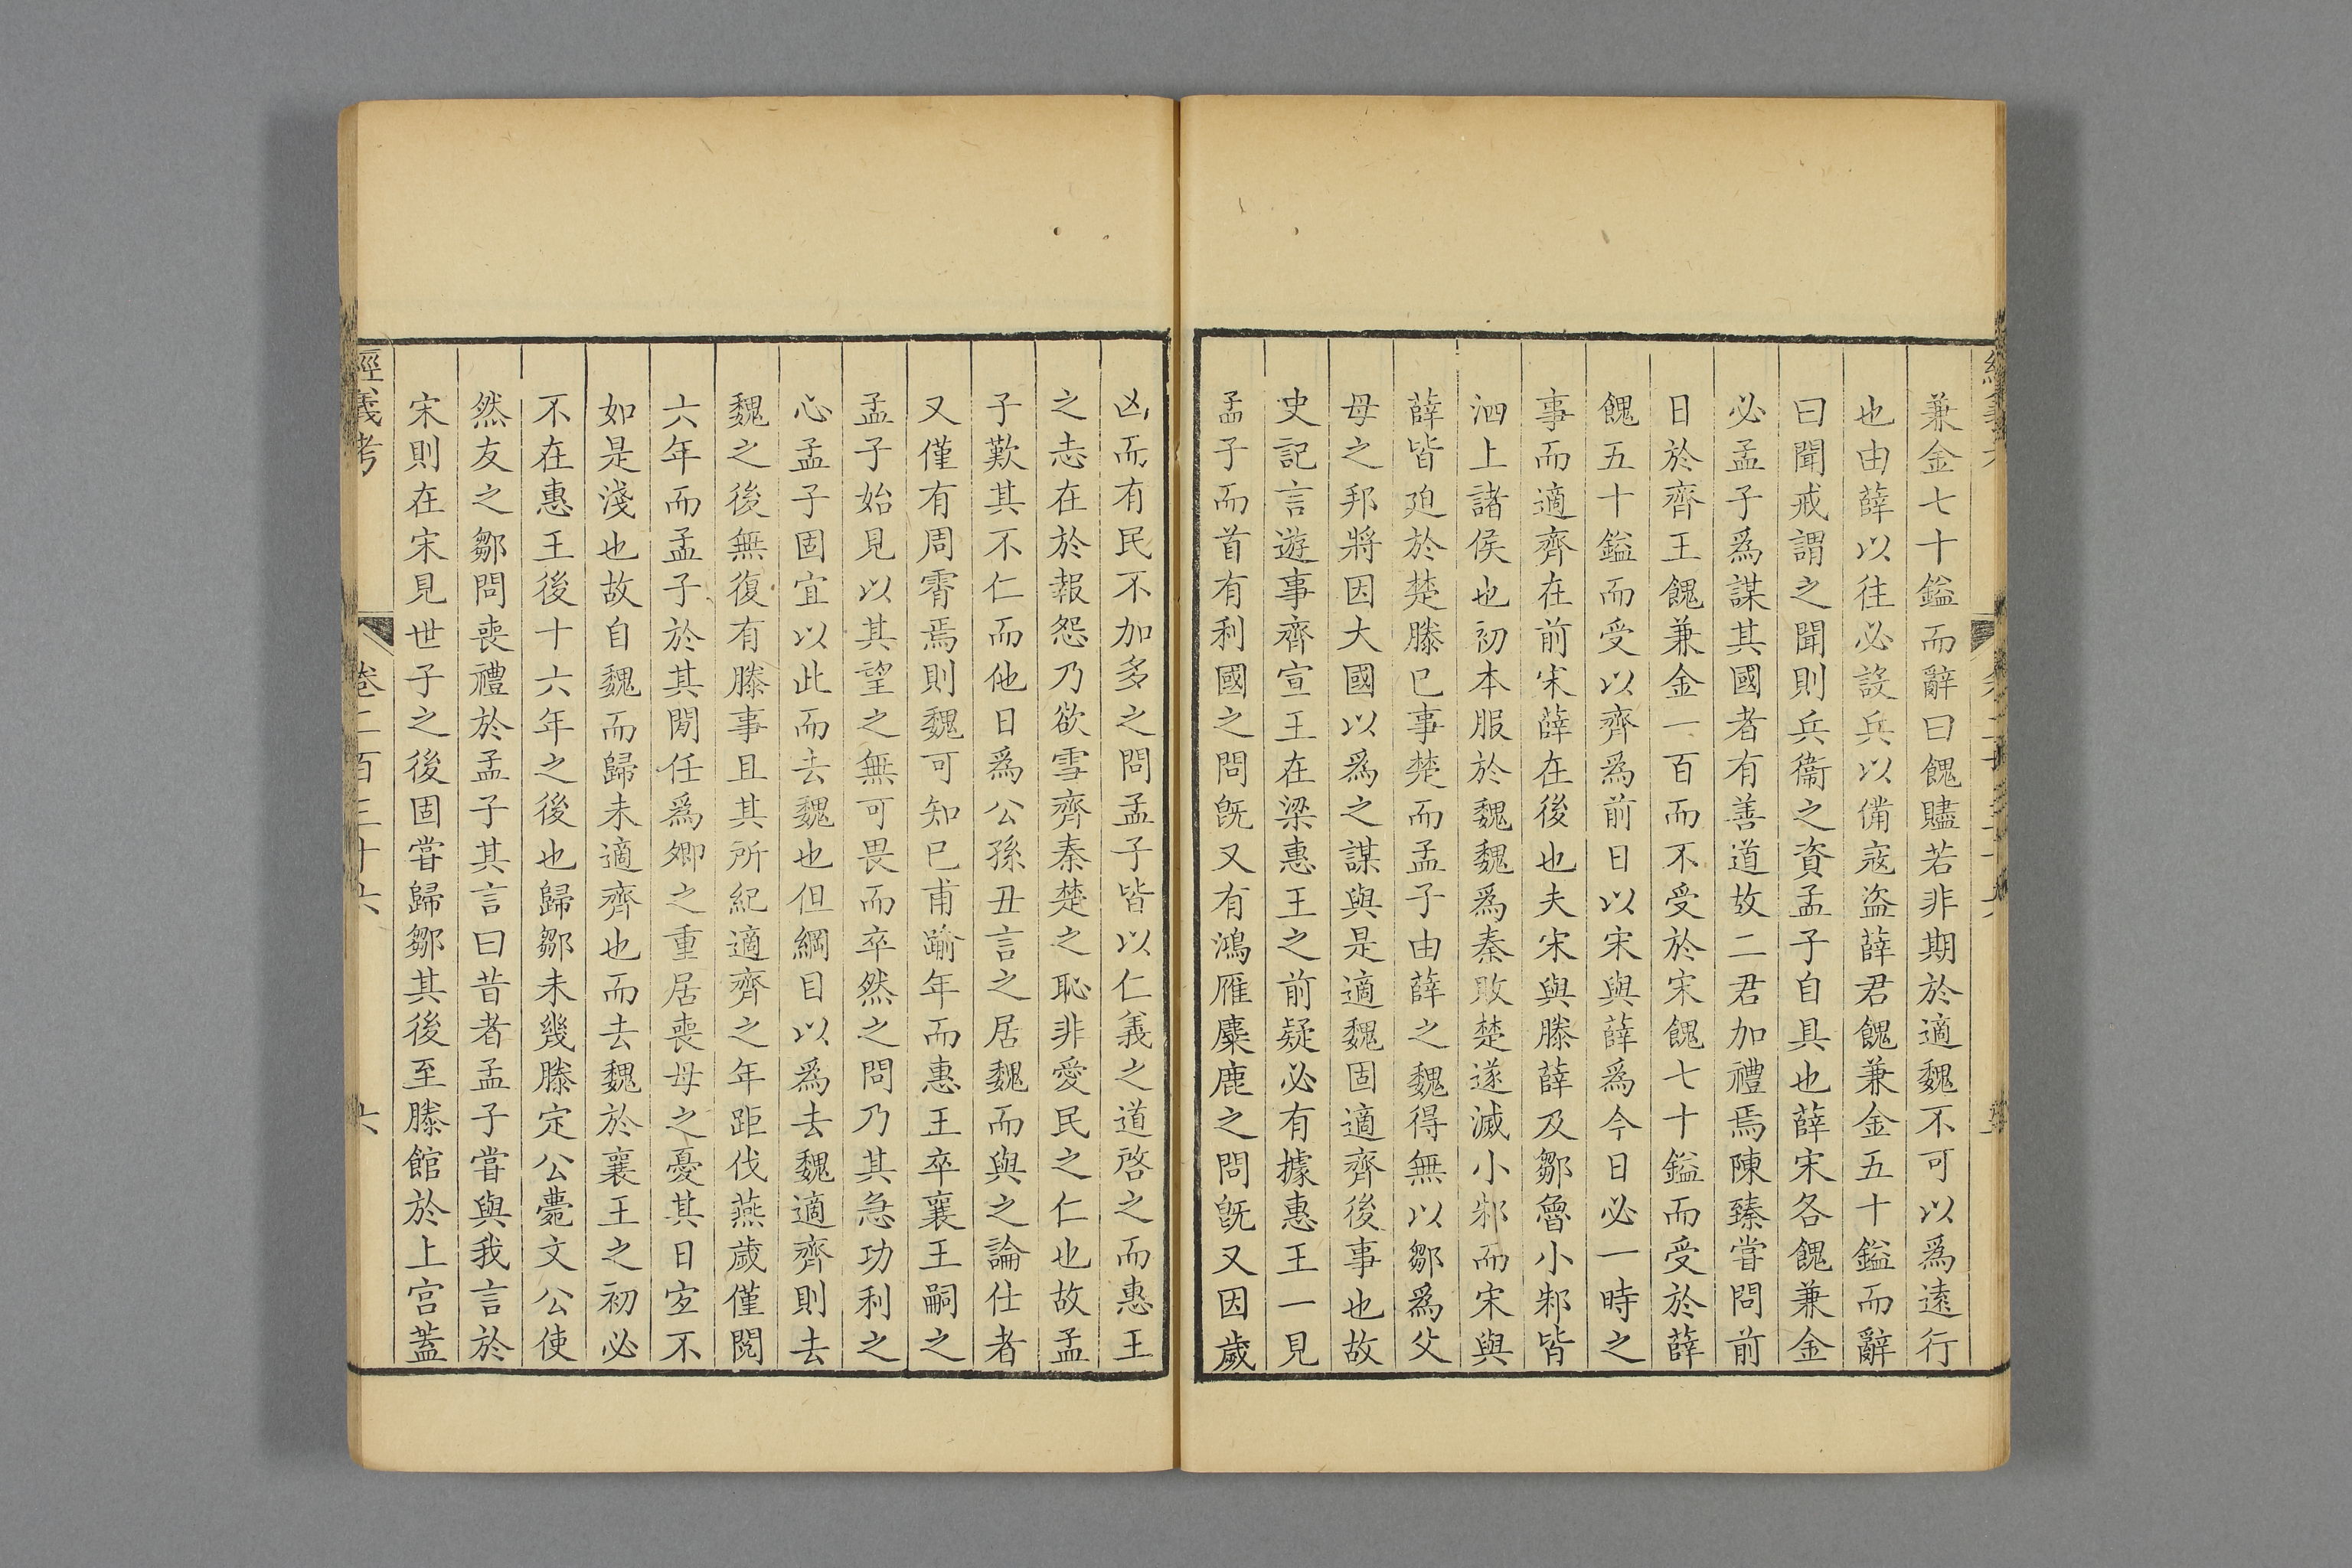 兼金七十鎰而辭曰餽贐若非期於適魏不可以爲遠行
也由薛以往必設兵以備寇盜薛君餽兼金五十鎰而辭
曰聞戒謂之聞則兵衞之資孟子自具也薛宋各餽兼金
必孟子爲謀其國者有善道故二君加禮焉陳臻嘗問前
日於齊王餽兼金一百而不受於宋餽七十鎰而受於薛
餽五十鎰而受以齊爲前日以宋與薛爲今日必一時之
事而適齊在前宋薛在後也夫宋與滕薛及鄒魯小邾皆
泗上諸侯也初本服於魏魏爲秦敗楚遂滅小邾而宋與
薛皆廹於楚滕已事楚而孟子由薛之魏得無以鄒爲父
母之邦將因大國以爲之謀與是適魏固適齊後事也故
史記言遊事齊宣王在梁惠王之前疑必有據惠王一見
孟子而首有利國之問旣又有鴻雁麋鹿之問旣又因歲
凶而有民不加多之問孟子皆以仁義之道啓之而惠王
之志在於報怨乃欲雪齊秦楚之恥非愛民之仁也故孟
子歎其不仁而他日爲公孫丑言之居魏而與之論仕者
又僅有周霄焉則魏可知已甫踰年而惠王卒襄王嗣之
孟子始見以其望之無可畏而卒然之問乃其急功利之
心孟子固宜以此而去魏也但綱目以爲去魏適齊則去
魏之後無復有滕事且其所紀適齊之年距伐燕歲僅閱
六年而孟子於其閒任爲卿之重居喪母之憂其日宐不
如是淺也故自魏而歸未適齊也而去魏於襄王之初必
不在惠王後十六年之後也歸鄒未幾滕定公薨文公使
然友之鄒問喪禮於孟子其言曰昔者孟子嘗與我言於
宋則在宋見世子之後固嘗歸鄒其後至滕館於上宮蓋
經義考 卷二百三十六 六